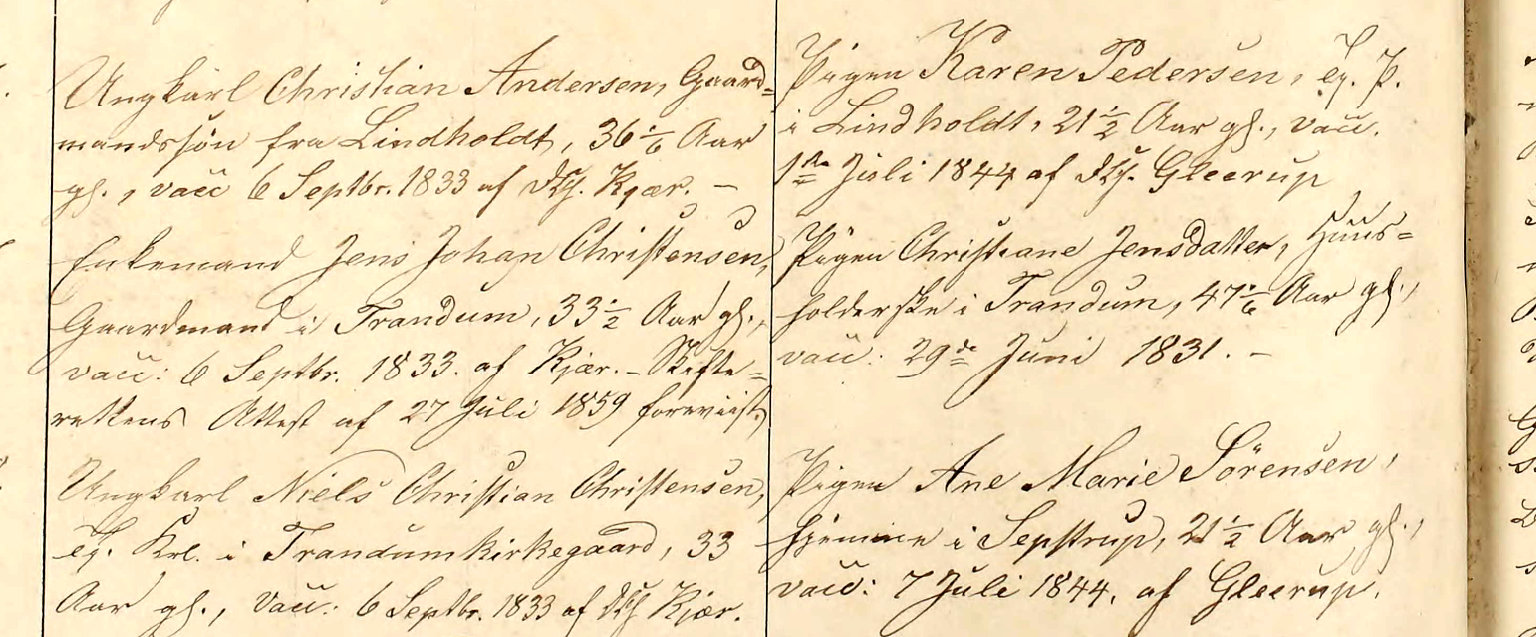 Ungkarl Christian Andersen, Gaard=
mandssøn fra Lindholdt, 36 1/6 Aar
gl., vacc 6 Septbr. 1833 af Kjær. –
Enkemand Jens Johan Christensen,
Gaardmand i Trandum, 33 1/2 Aar gl.,
vacc: 6 Septbr. 1833. af Kjær. – Skifte=
rettens Attest af 27 Juli 1859 foreviist.
Ungkarl Niels Christian Christensen,
tj. Krl. i Trandumkirkegaard, 33
Aar gl., vacc.: 6 Septbr. 1833 af Kjær.
Pigen Karen Pedersen, tj. P.
i Lindholdt, 21 1/2 Aar gl., vacc.
1ste Juli 1844 af Gleerup
Pigen Christiane Jensdatter, Huus=
holderske i Trandum, 47 1/6 Aar gl.,
vacc: 29de Juni 1831. –
Pigen Ane Marie Sørensen,
hjemme i Sepstrup, 21 1/2 Aar gl.,
vacc: 7 Juli 1844. af Gleerup.